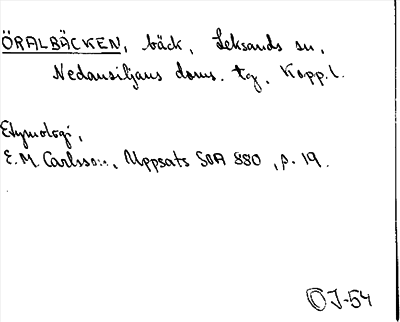 ÖRALBÄCKEN, bäck, Leksands sn,
Nedansiljans doms. tg, Kopp. l.
Etymologi,
E. M. Carlsson, Uppsats SOA 880, p. 19.
OJ-54